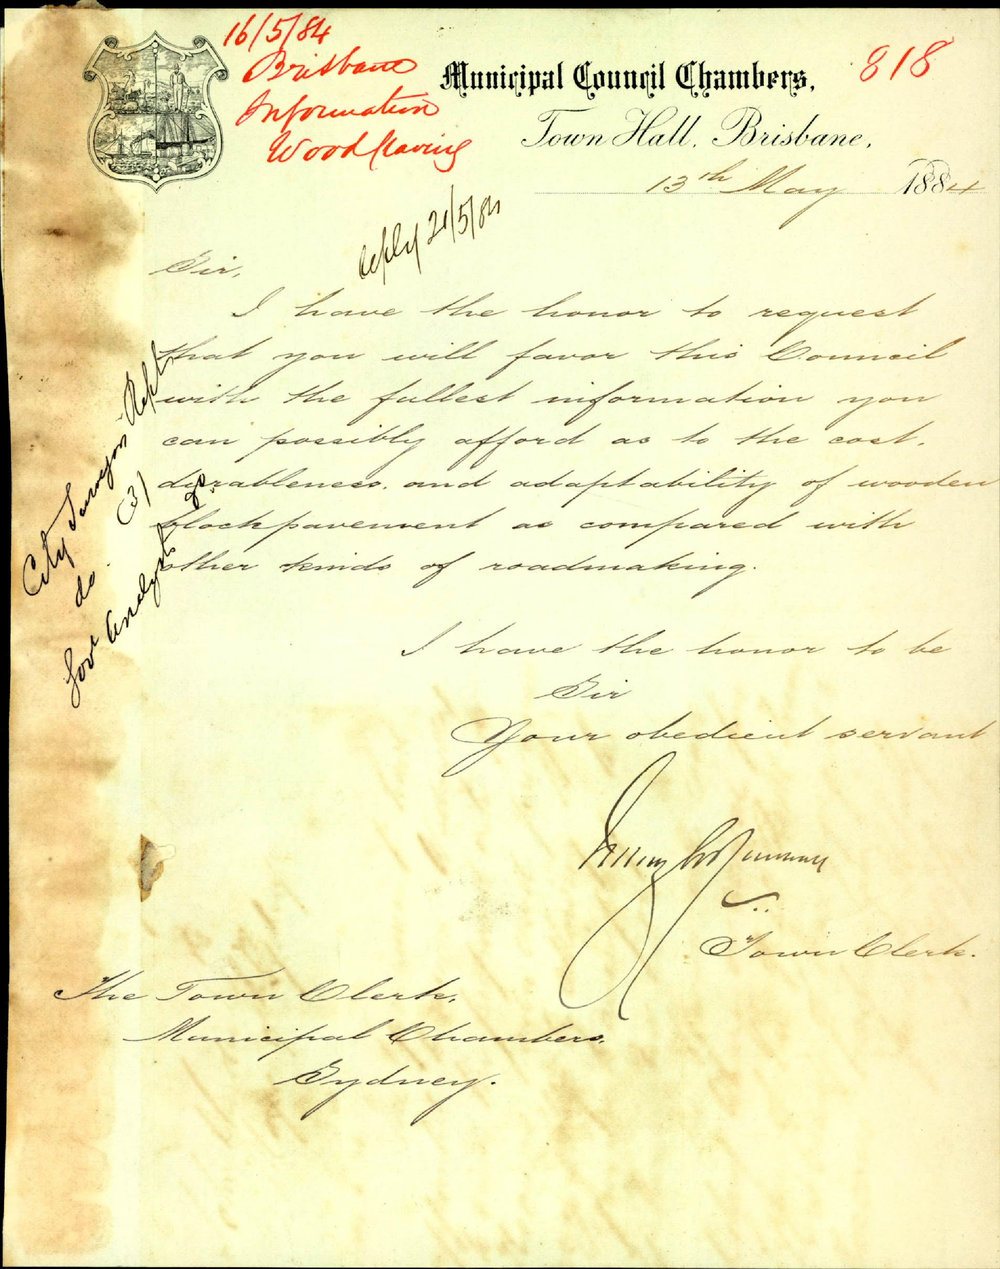 16/5/84
Brisbane
Information
Wood Paving
818
Municipal Council Chambers,
Town Hall, Brisbane,
13th May 1884
reply 21/5/84
Sir,
I have the honor to request
that you will favor this Council
with the fullest information you
can possibly afford as to the cost,
durableness, and adaptability of wooden
blockpavement as compared with
other kinds of roadmaking.
City Surveyors Repts
do (3)
Govt Analysts do
I have the honor to be
Sir
Your obedient servant
Town Clerk.
The Town Clerk,
Municipal Chambers,
Sydney.